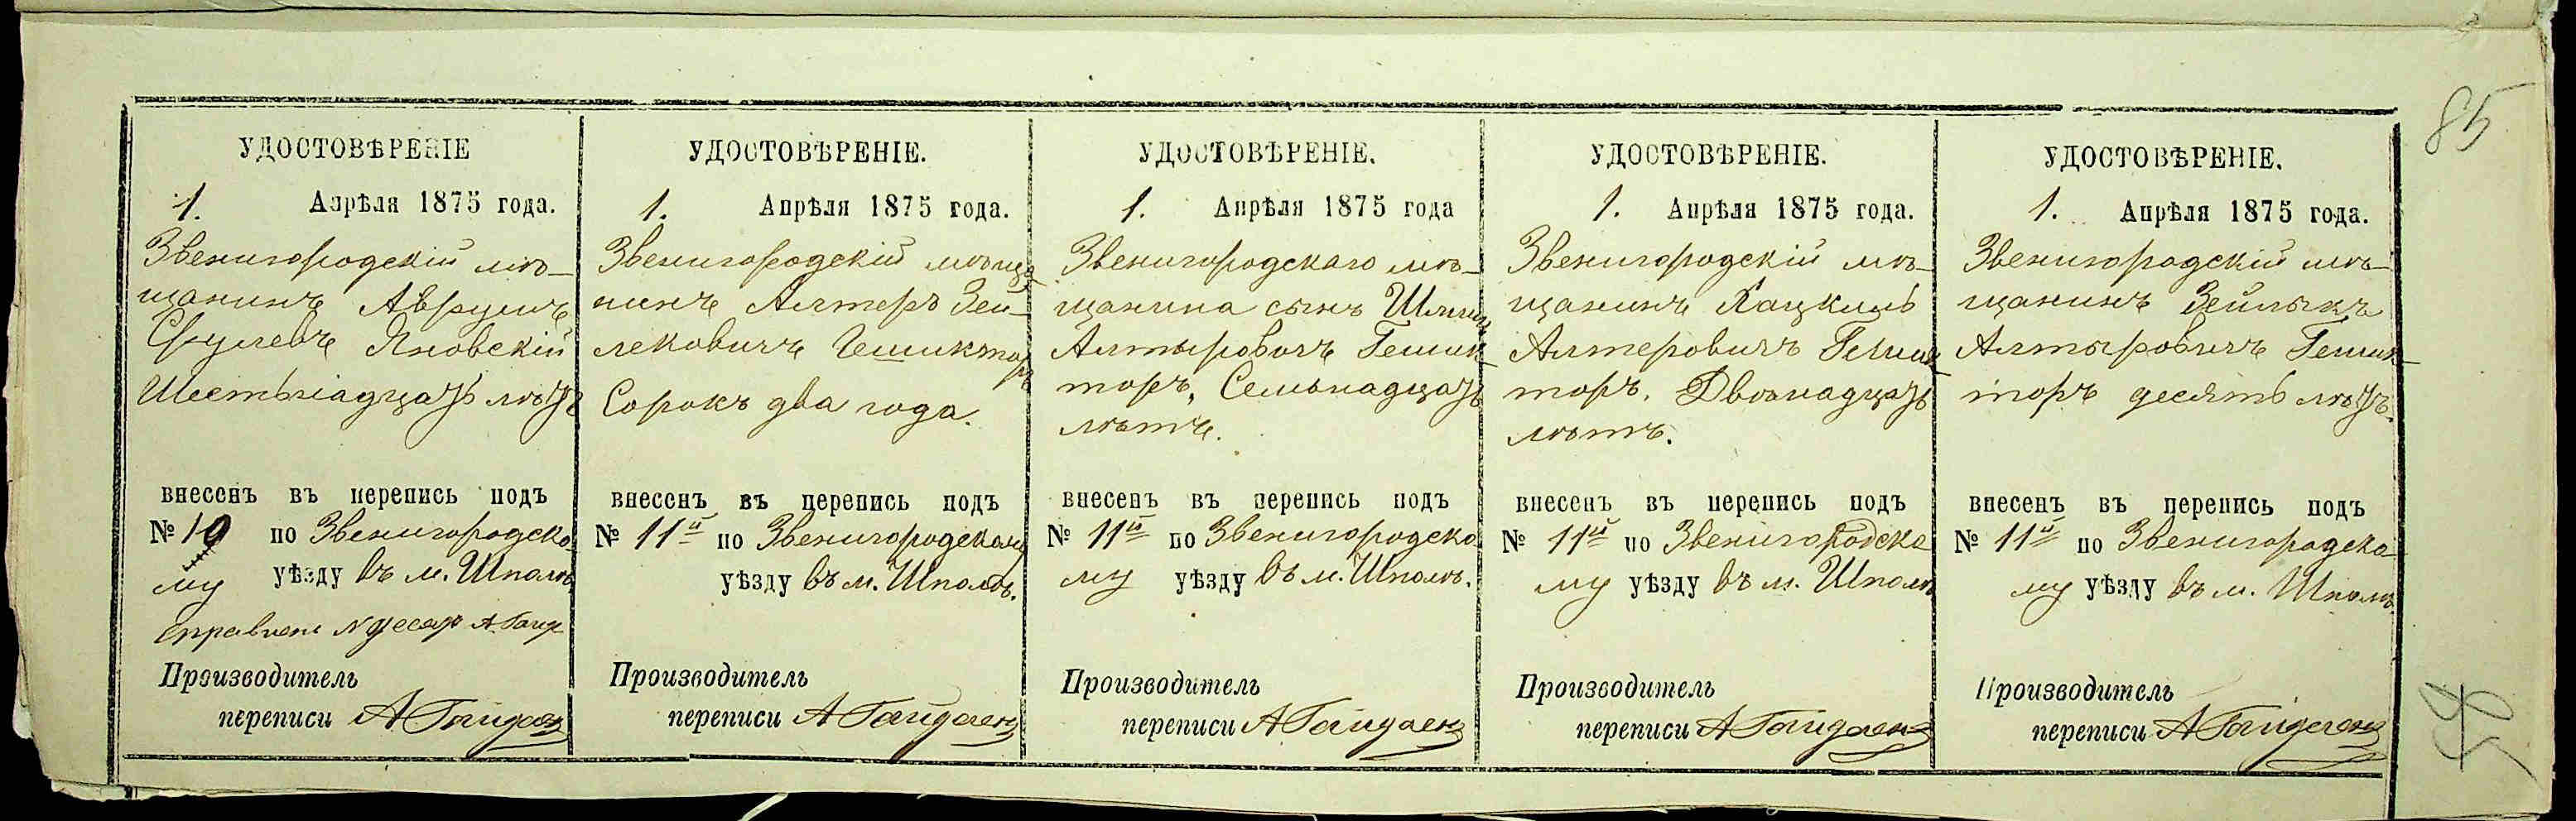 85
УДОСТОВѢРЕНІЕ
1. Апрѣля 1875 года.
Звенигородскій мѣ-
щанинъ Аврумъ
Сруллевъ Яновскій
Шестьнадцать лѣтъ
внесенъ въ перепись подъ
№ 10 по Звенигородско
му уѣзду въ м. Шполѣ
Производитель
переписи А Гайдаен
УДОСТОВѢРЕНІЕ.
1. Апрѣля 1875 года.
Звенигородскій мѣща
нинъ Алтеръ Зей-
лековичъ Гешикторъ
Сорокъ два года.
внесенъ въ перепись подъ
№ 11й по Звенигородскому
уѣзду въ м. Шполѣ.
Производитель
переписи А Гайдаен
УДОСТОВѢРЕНІЕ.
1. Апрѣля 1875 года
Звенигородскаго мѣ-
щанина сынъ
Алтыровичъ Гешик
торъ, Семьнадцать
лѣтъ.
внесенъ въ перепись подъ
№ 11й по Звенигородско
му уѣзду въ м. Шполѣ.
Производитель
переписи А Гайдаен
УДОСТОВѢРЕНІЕ.
1. Апрѣля 1875 года.
Звенигородскій мѣ-
щанинъ Хацкель
Алтеровичъ Гешик
торъ. Двѣнадцать
лѣтъ.
внесенъ въ перепись подъ
№ 11й по Звенигородско
му уѣзду въ м. Шполѣ
Производитель
переписи А Гайдаен
УДОСТОВѢРЕНІЕ.
1. Апрѣля 1875 года.
Звенигородскій мѣ-
щанинъ Зейлыкъ
Алтыровичъ Гешик-
торъ десять лѣтъ.
внесенъ въ перепись подъ
№ 11й по Звенигородско
му уѣзду въ м. Шполѣ.
Производитель
переписи А Гайдаен